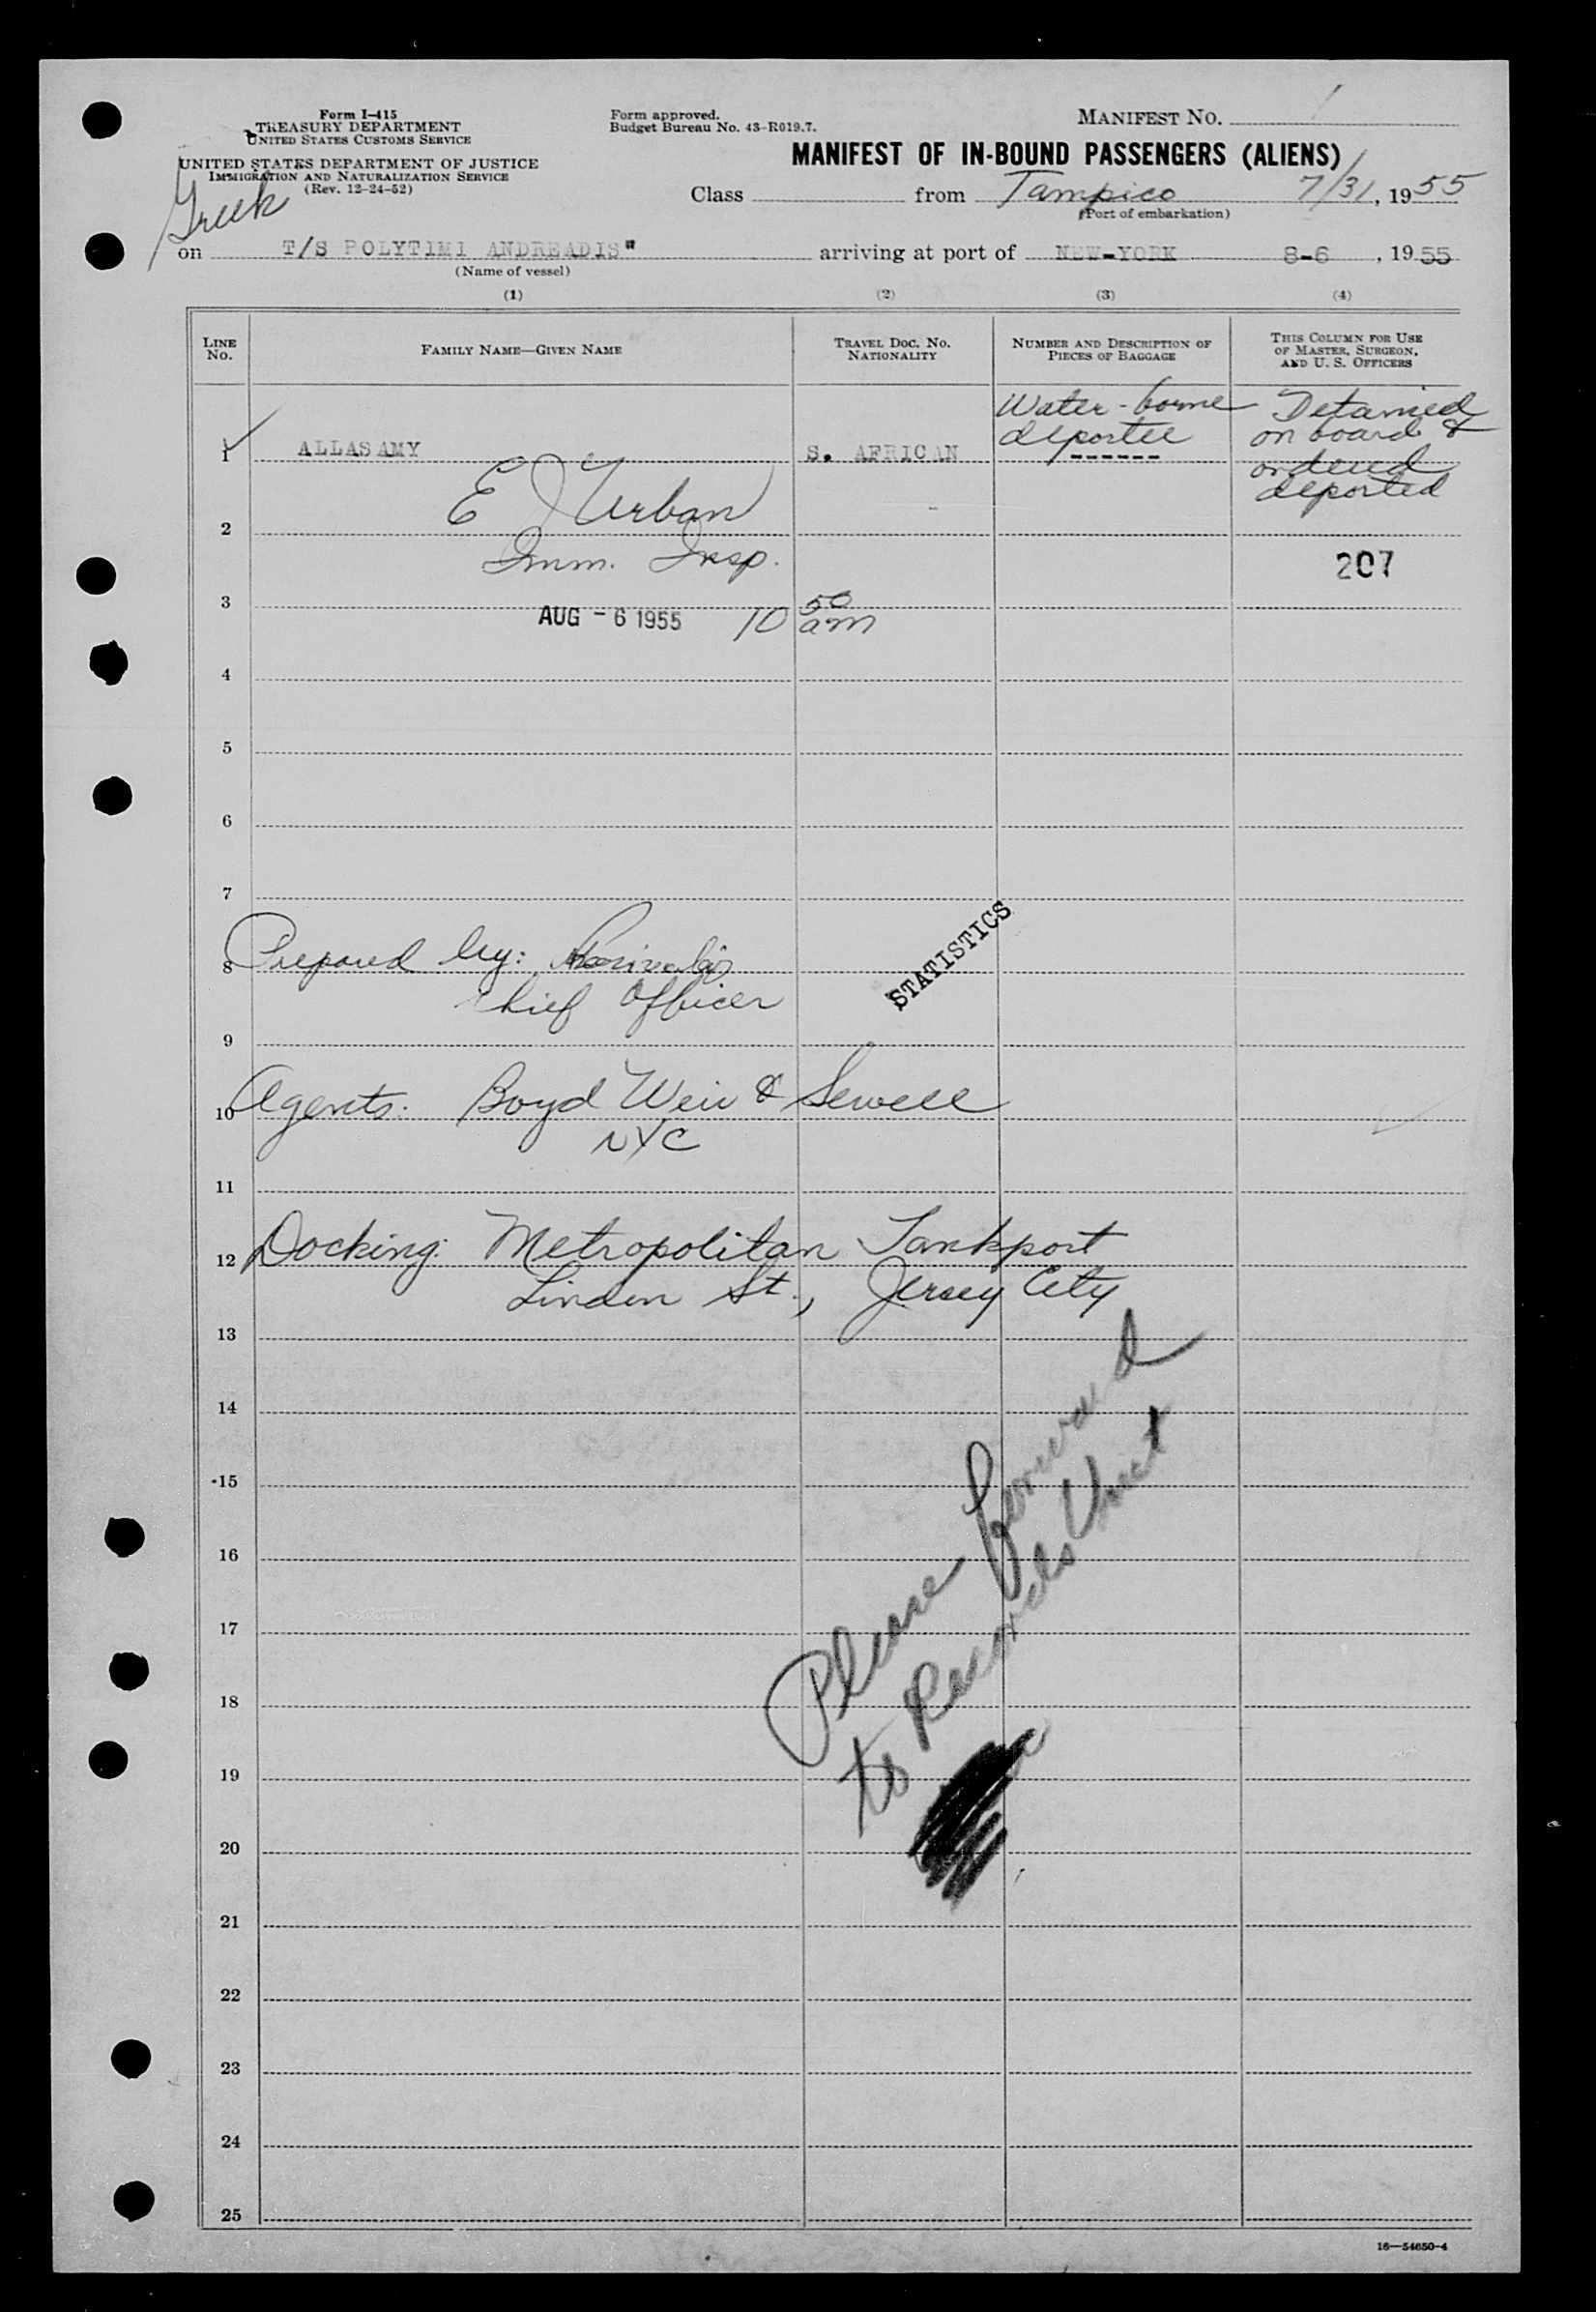 Form I-415
TREASURY DEPARTMENT
UNITED STATES CUSTOMS SERVICE
UNITED STATES DEPARTMENT OF JUSTICE
IMMIGRATION AND NATURALIZATION SERVICE
(Rev. 12-24-52)
Form approved.
Budget Bureau No. 43-R019.7.
MANIFEST NO. 1
MANIFEST OF IN-BOUND PASSENGERS (ALIENS)
Class from Tampico 7/31, 1955
(Port of embarkation)
Greek
on T/S POLYTIMI ANDREADIS" arriving at port of NEW-YORK 8-6, 1955
(Name of vessel)
(1) (2) (3) (4)
LINE NO. FAMILY NAME—GIVEN NAME TRAVEL DOC. NO. NATIONALITY NUMBER AND DESCRIPTION OF PIECES OF BAGGAGE THIS COLUMN FOR USE OF MASTER, SURGEON, AND U. S. OFFICERS
Water-borne Detained
deportee on board &
1 ALLASAMY S. AFRICAN ------ ordered
deported
E J Urban
2
Imm. Insp. 207
3
AUG - 6 1955 10 50 am
4
5
6
7
STATISTICS
8 Prepared by:
Chief Officer
9
10 Agents: Boyd Weir & Sewell
NYC
11
12 Docking: Metropolitan Tankport
Linden St., Jersey City
13
14
15
16
17
18
19
20
21
22
23
24
25
Please forward
to Records Unit
16—54650-4